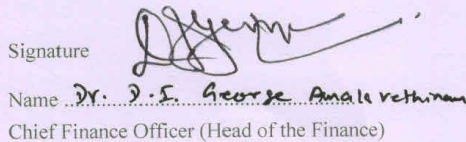 Signature
Name Dr. D.I. George Amalarethinam
Chief Finance Officer (Head of the Finance)